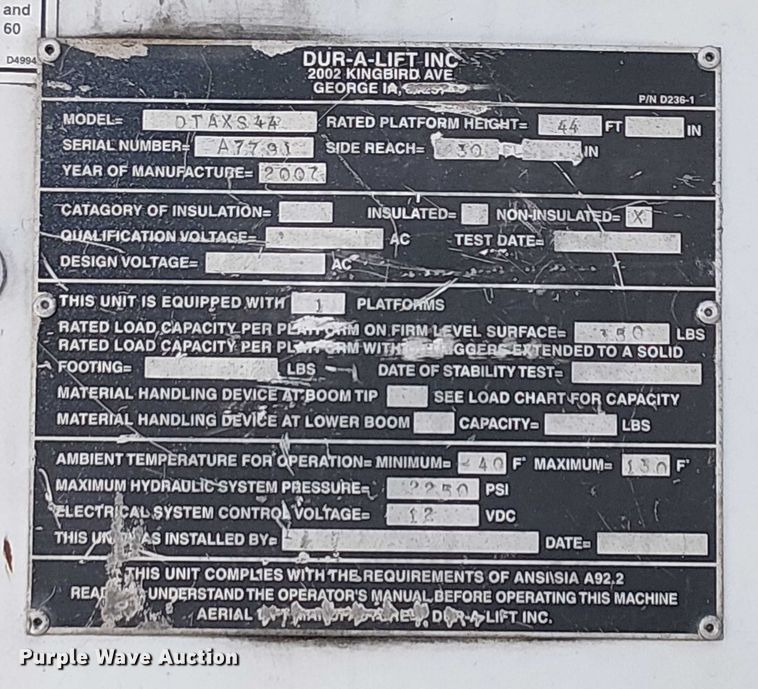 and
60
D4994
DUR-A-LIFT INC
2002 KINGBIRD AVE
GEORGE IA,
P/N D236-1
MODEL= DTAXS44 RATED PLATFORM HEIGHT= 44 FT IN
SERIAL NUMBER= SIDE REACH= 30 IN
YEAR OF MANUFACTURE= 2007
CATAGORY OF INSULATION= INSULATED= NON-INSULATED= X
QUALIFICATION VOLTAGE= AC TEST DATE=
DESIGN VOLTAGE= AC
THIS UNIT IS EQUIPPED WITH 1 PLATFORMS
RATED LOAD CAPACITY PER PLATFORM ON FIRM LEVEL SURFACE= 350 LBS
RATED LOAD CAPACITY PER PLATFORM WITH EXTENDED TO A SOLID
FOOTING= LBS DATE OF STABILITY TEST=
MATERIAL HANDLING DEVICE AT BOOM TIP SEE LOAD CHART FOR CAPACITY
MATERIAL HANDLING DEVICE AT LOWER BOOM CAPACITY= LBS
AMBIENT TEMPERATURE FOR OPERATION= MINIMUM= -40 F° MAXIMUM= 130 F°
MAXIMUM HYDRAULIC SYSTEM PRESSURE= 2250 PSI
ELECTRICAL SYSTEM CONTROL VOLTAGE= 12 VDC
THIS UNIT AS INSTALLED BY= DATE=
THIS UNIT COMPLIES WITH THE REQUIREMENTS OF ANSI/SIA A92.2
READ UNDERSTAND THE OPERATOR'S MANUAL BEFORE OPERATING THIS MACHINE
AERIAL DUR-A-LIFT INC.
Purple Wave Auction